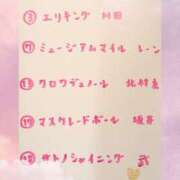 ③ エリキング 川田
⑦ ミュージアムマイル レーン
⑪ クロワデュノール 北村友
⑰ マスカレードボール 坂井
⑱ サトノシャイニング 武